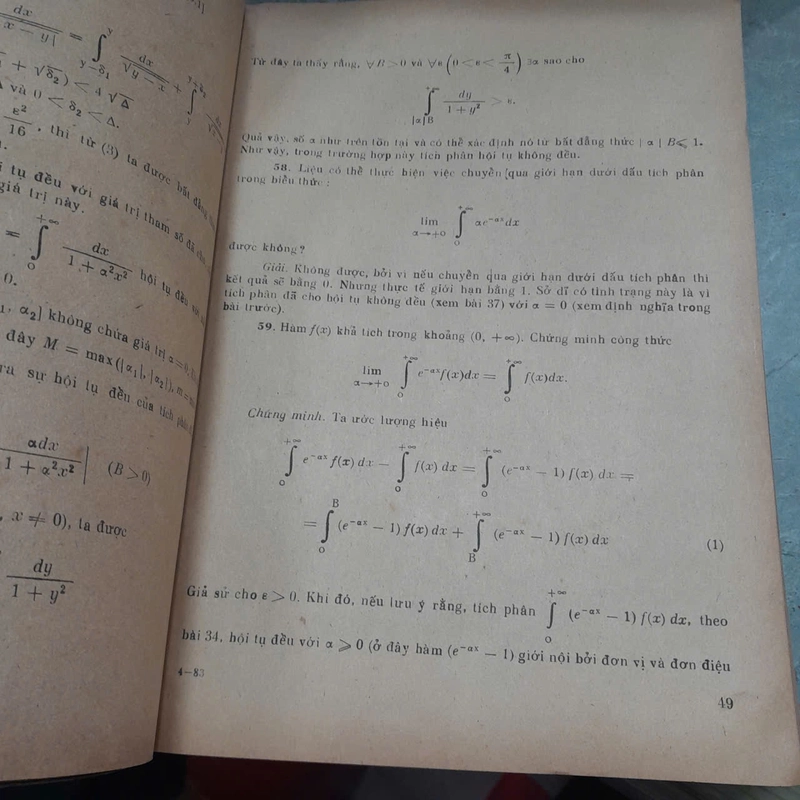 dx
x − y| = ∫ y y−δ₁ dx √y − x + ∫ y
+ √δ₂) < 4 √Δ
và 0 < δ₂ < Δ.
ε² 16 , thì từ (3) ta được bất đẳng
tụ đều với giá trị tham số đã cho
giá trị này.
= ∫ +∞ 0 dx 1 + α²x² hội tụ đều với
0.
, α₂] không chứa giá trị α = 0.
đây M = max(|α₁|, |α₂|), m =
ra sự hội tụ đều của tích phân
αdx 1 + α²x² | (B > 0)
, x ≠ 0), ta được
dy 1 + y²
Từ đây ta thấy rằng, ∀B > 0 và ∀ε (0 < ε < π/4) ∃α sao cho
∫ +∞ |α|B dy 1 + y² > ε.
Quả vậy, số α như trên tồn tại và có thể xác định nó từ bất đẳng thức | α | B ⩽ 1.
Như vậy, trong trường hợp này tích phân hội tụ không đều.
58. Liệu có thể thực hiện việc chuyển [qua giới hạn dưới dấu tích phân
trong biểu thức :
lim α→+0 ∫ +∞ 0 αe^{−αx}dx
được không?
Giải. Không được, bởi vì nếu chuyển qua giới hạn dưới dấu tích phân thì
kết quả sẽ bằng 0. Nhưng thực tế giới hạn bằng 1. Sở dĩ có tình trạng này là vì
tích phân đã cho hội tụ không đều (xem bài 37) với α = 0 (xem định nghĩa trong
bài trước).
59. Hàm f(x) khả tích trong khoảng (0, +∞). Chứng minh công thức
lim α→+0 ∫ +∞ 0 e^{−αx}f(x)dx = ∫ +∞ 0 f(x)dx.
Chứng minh. Ta ước lượng hiệu
∫ +∞ 0 e^{−αx} f(x) dx − ∫ +∞ 0 f(x) dx = ∫ +∞ 0 (e^{−αx} − 1) f(x) dx =
= ∫ B 0 (e^{−αx} − 1) f(x) dx + ∫ +∞ B (e^{−αx} − 1) f(x) dx (1)
Giả sử cho ε > 0. Khi đó, nếu lưu ý rằng, tích phân ∫ +∞ 0 (e^{−αx} − 1) f(x) dx, theo
bài 34, hội tụ đều với α ⩾ 0 (ở đây hàm (e^{−αx} − 1) giới nội bởi đơn vị và đơn điệu
4—83
49